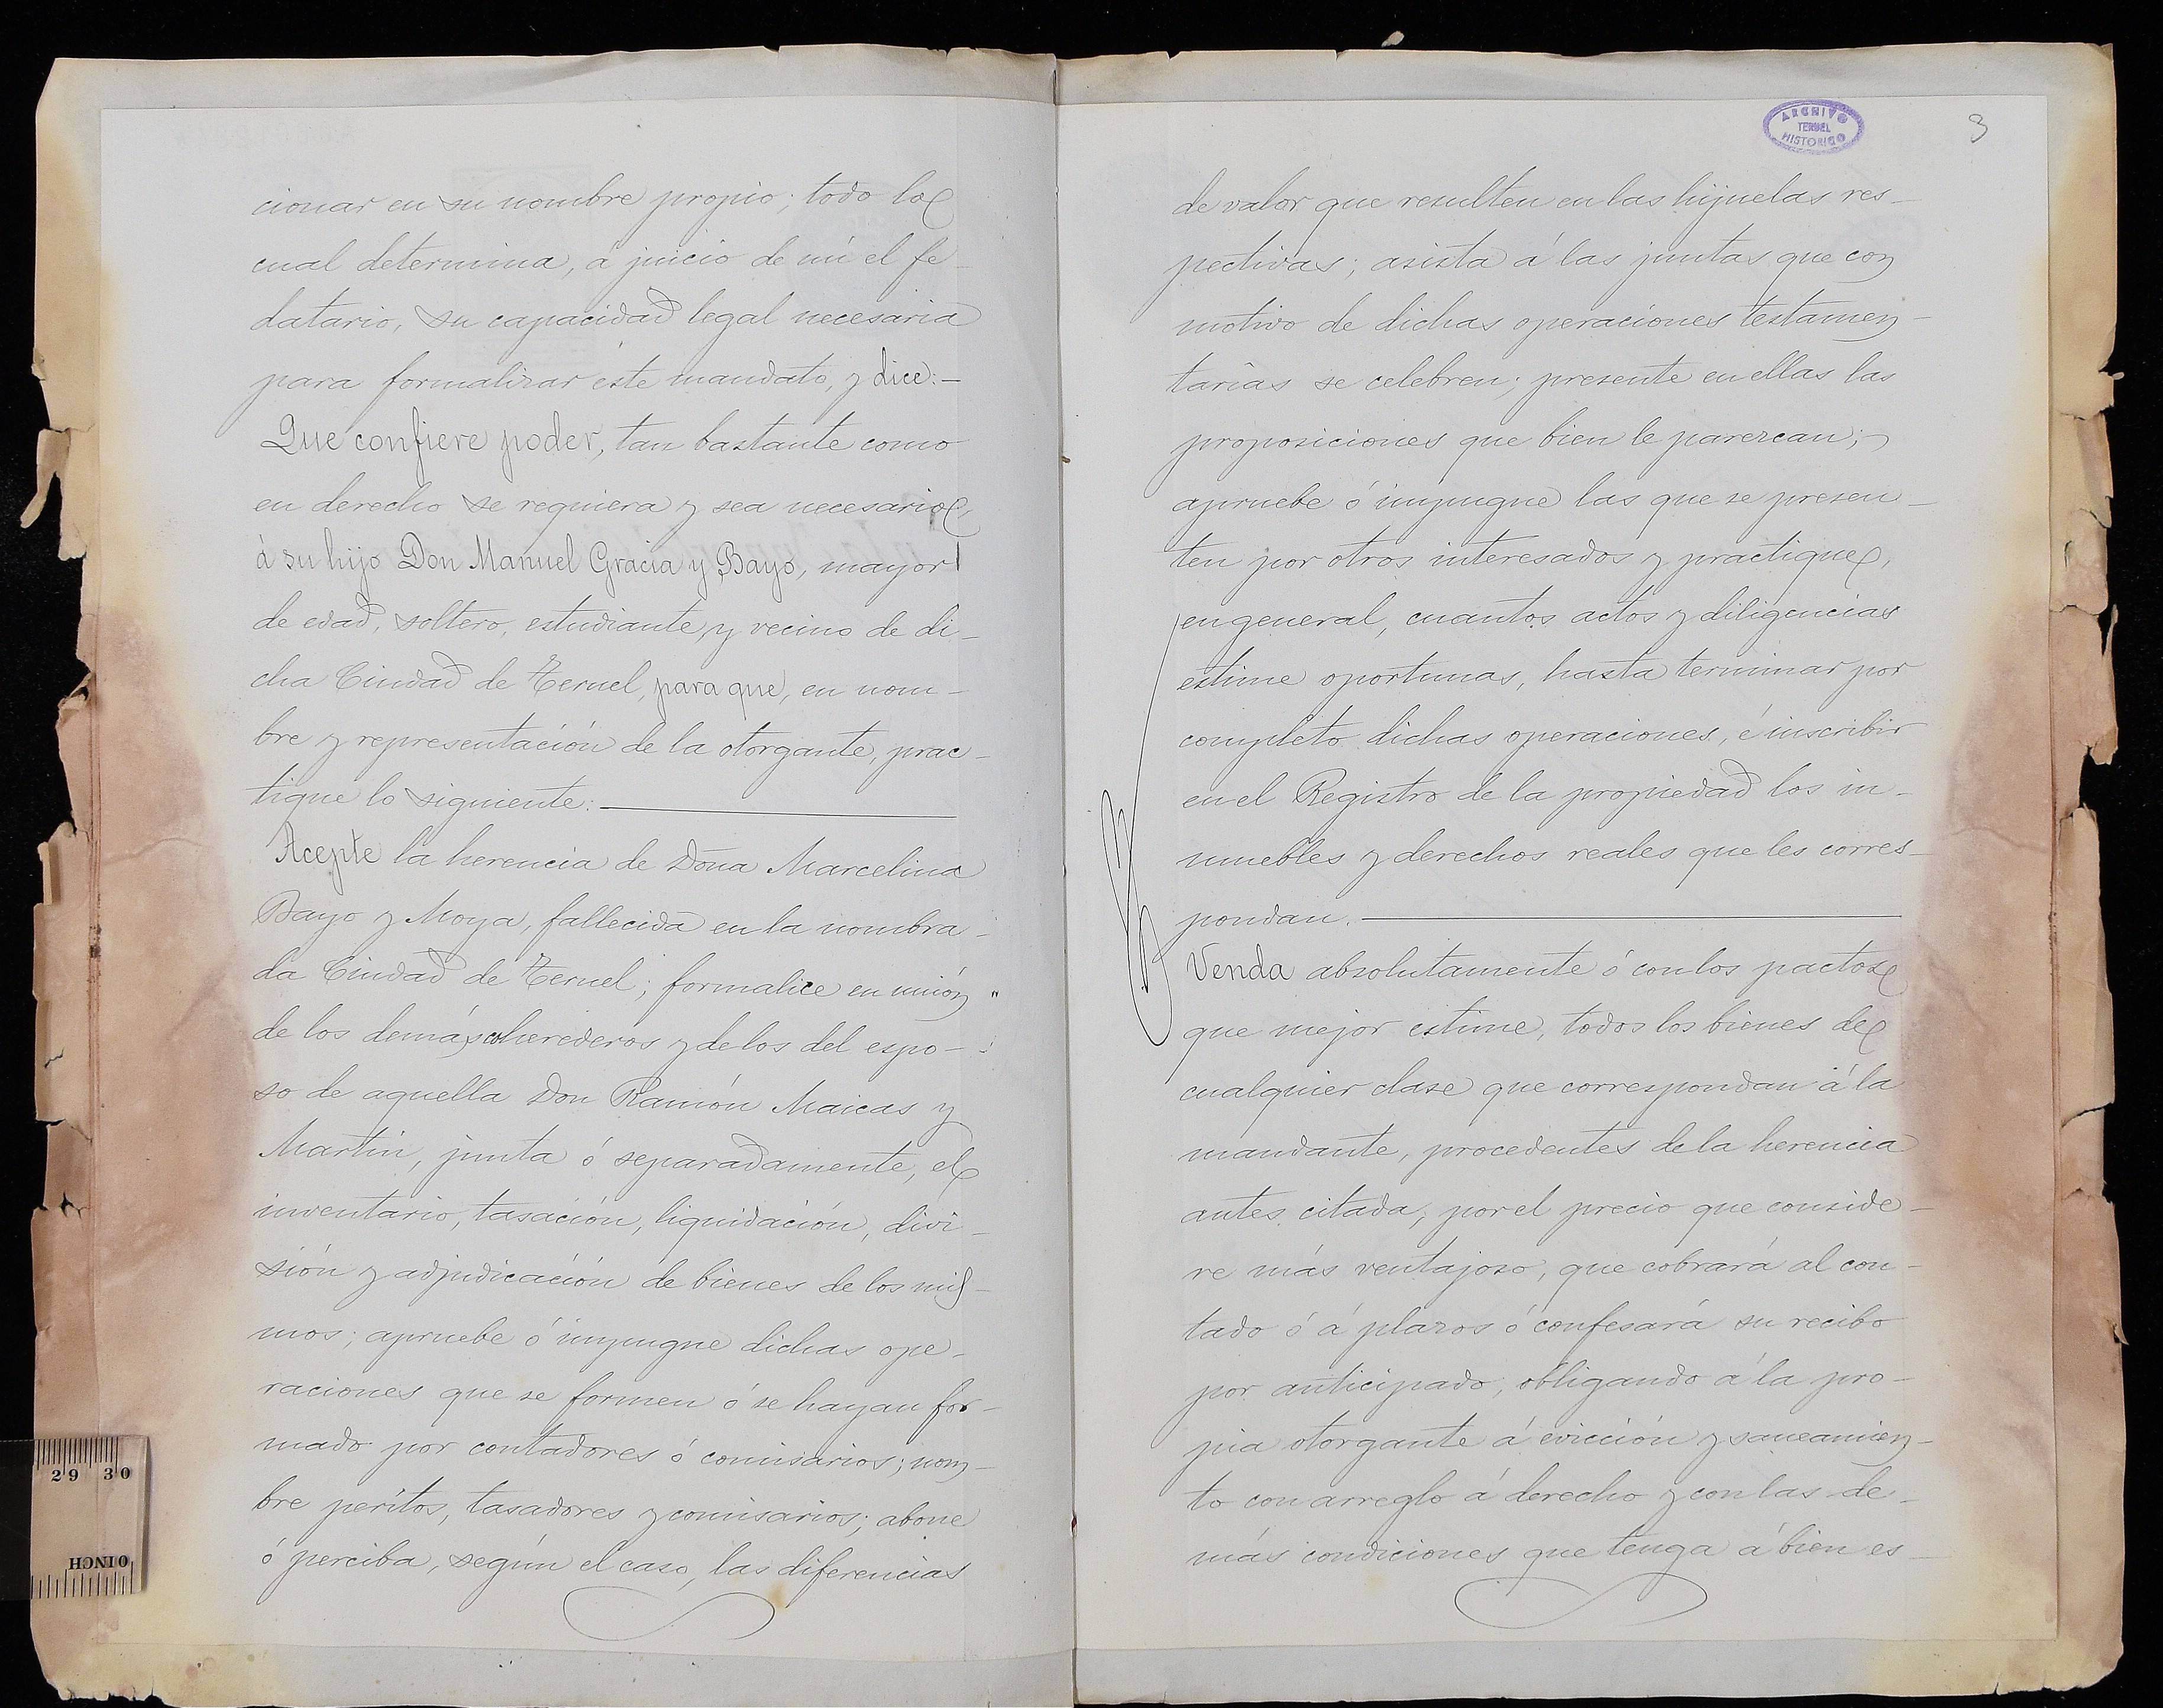 cionar en su nombre propio; todo lo
cual determina, á juicio de mí el fe-
datario, su capacidad legal necesaria
para formalizar éste mandato, y dice:-
Que confiere poder, tan bastante como
en derecho se requiera y sea necesario,
á su hijo Don Manuel Gracia y Bayo, mayor
de edad, soltero, estudiante, y vecino de di-
cha Ciudad de Teruel, para que, en nom-
bre y representación de la otorgante, prac-
tique lo siguiente:
Acepte la herencia de Doña Marcelina
Bayo y Moya, fallecida en la nombra-
da Ciudad de Teruel; formalice en unión "
de los demás coherederos y de los del espo-
so de aquella Don Ramón Maicas y
Martín, junta ó separadamente, el
inventario, tasación, liquidación, divi-
sión y adjudicación de bienes de los mis-
mos; apruebe ó impugne dichas ope-
raciones que se formen ó se hayan for-
mado por contadores ó comisarios; nom-
bre peritos, tasadores y comisarios; abone
ó perciba, según el caso, las diferencias
ARCHIVO
TERUEL
HISTORICO
3
de valor que resulten en las hijuelas res-
pectivas; asista á las juntas que con
motivo de dichas operaciones testamen-
tarías se celebren; presente en ellas las
proposiciones que bien le parezcan;
apruebe ó impugne las que se presen-
ten por otros interesados y practique,
en general, cuantos actos y diligencias
estime oportunas, hasta terminar por
completo dichas operaciones, é inscribir
en el Registro de la propiedad los in-
muebles y derechos reales que les corres-
pondan.
Venda absolutamente ó con los pactos
que mejor estime, todos los bienes de
cualquier clase que correspondan á la
mandante, procedentes de la herencia
antes citada, por el precio que conside-
re más ventajoso, que cobrará al con-
tado ó á plazos ó confesará su recibo
por anticipado, obligando á la pro-
pia otorgante á evicción y saneamien-
to con arreglo á derecho y con las de-
más condiciones que tenga á bien es-
29 30
0 INCH